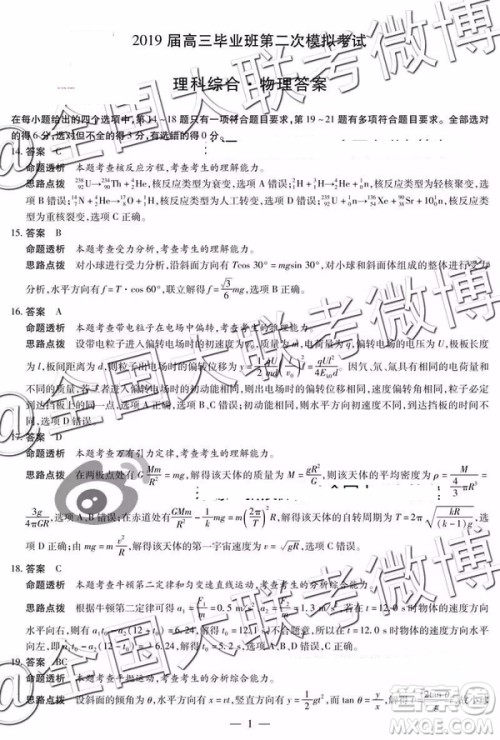 2019 届高三毕业班第二次模拟考试
理科综合·物理答案
在每小题给出的四个选项中,第 14~18 题只有一项符合题目要求,第 19~21 题有多项符合题目要求。全部选对
的得 6 分,选对但不全的得 3 分,有选错的得 0 分。
14. 答案 C
命题透析 本题考查核反应方程,考查考生的理解能力。
思路点拨 ²³⁸₉₂U→²³⁴₉₀Th+⁴₂He,核反应类型为衰变,选项 A 错误;²₁H+³₁H→⁴₂He+¹₀n,核反应类型为轻核聚变,选
项 B 错误;¹⁴₇N+⁴₂He→¹⁷₈O+¹₁H,核反应类型为人工转变,选项 D 错误;²³⁵₉₂U+¹₀n→¹³⁶₅₄Xe+⁹⁰₃₈Sr+10¹₀n,核反应类
型为重核裂变,选项 C 正确。
15. 答案 B
命题透析 本题考查受力分析,考查考生的理解能力。
思路点拨 对小球进行受力分析,沿斜面方向有 Tcos 30°=mgsin 30°,对小球和斜面体组成的整体进行受力
分析,水平方向有 f=T·cos 60°,解得 f=√3/6 mg,选项 B 正确。
16. 答案 A
命题透析 本题考查带电粒子在电场中偏转,考查考生的理解能力。
思路点拨 设带电粒子进入偏转电场时的速度为 v,电荷量为 q,质量为 m,偏转电场的电压为 U,极板长度
为 l,板间距离为 d,则出偏转电场时的偏转位移 y=
因氕、氘、氚具有相
同的电荷量,进入偏转电场时的初动能相同,则出电场时的偏转位移相同,速度偏转角相同,粒子必定
到达挡板的同一点,选项 A 正确,选项 C 错误;
初动能相同,则水平方向初速度不同,到达挡板的时间
不同,选项 B、D 错误。
17. 答案 D
命题透析 本题考查万有引力定律,考查考生的理解能力。
思路点拨 在两极点处有 G Mm/R²=mg,解得该天体的质量 M=gR²/G,则该天体的平均密度为 ρ=
3g/4πGR,选项 A、B 错误;在赤道处有
解得该天体的自转周期 T=2π√(kR/((k-1)g)),选
项 D 正确;由
解得该天体的第一宇宙速度 v=√gR,选项 C 错误。
18. 答案 C
命题透析 本题考查牛顿第二定律和匀变速直线运动,考查考生的分析综合能力。
思路点拨 根据牛顿第二定律可得
t=12.0 s 时物体的速度方向
水平向右,则有
解得 t₀=
不合题意,所以在 t=12.0 s 时物体的速度方
向水平向左,即
解得 t₀=
选项 C 正确。
19. 答案 BC
命题透析 本题考查平抛运动,考查考生的分析综合能力。
思路点拨 设斜面的倾角为 θ,水平方向有 x=vt,竖直方向有 y=½gt²,而 tan θ=y/x,解得
— 1 —
@全国大联考微博